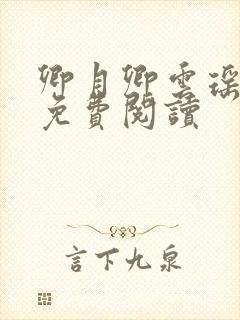 卿月卿雲瑤
免費閱讀
言下九泉